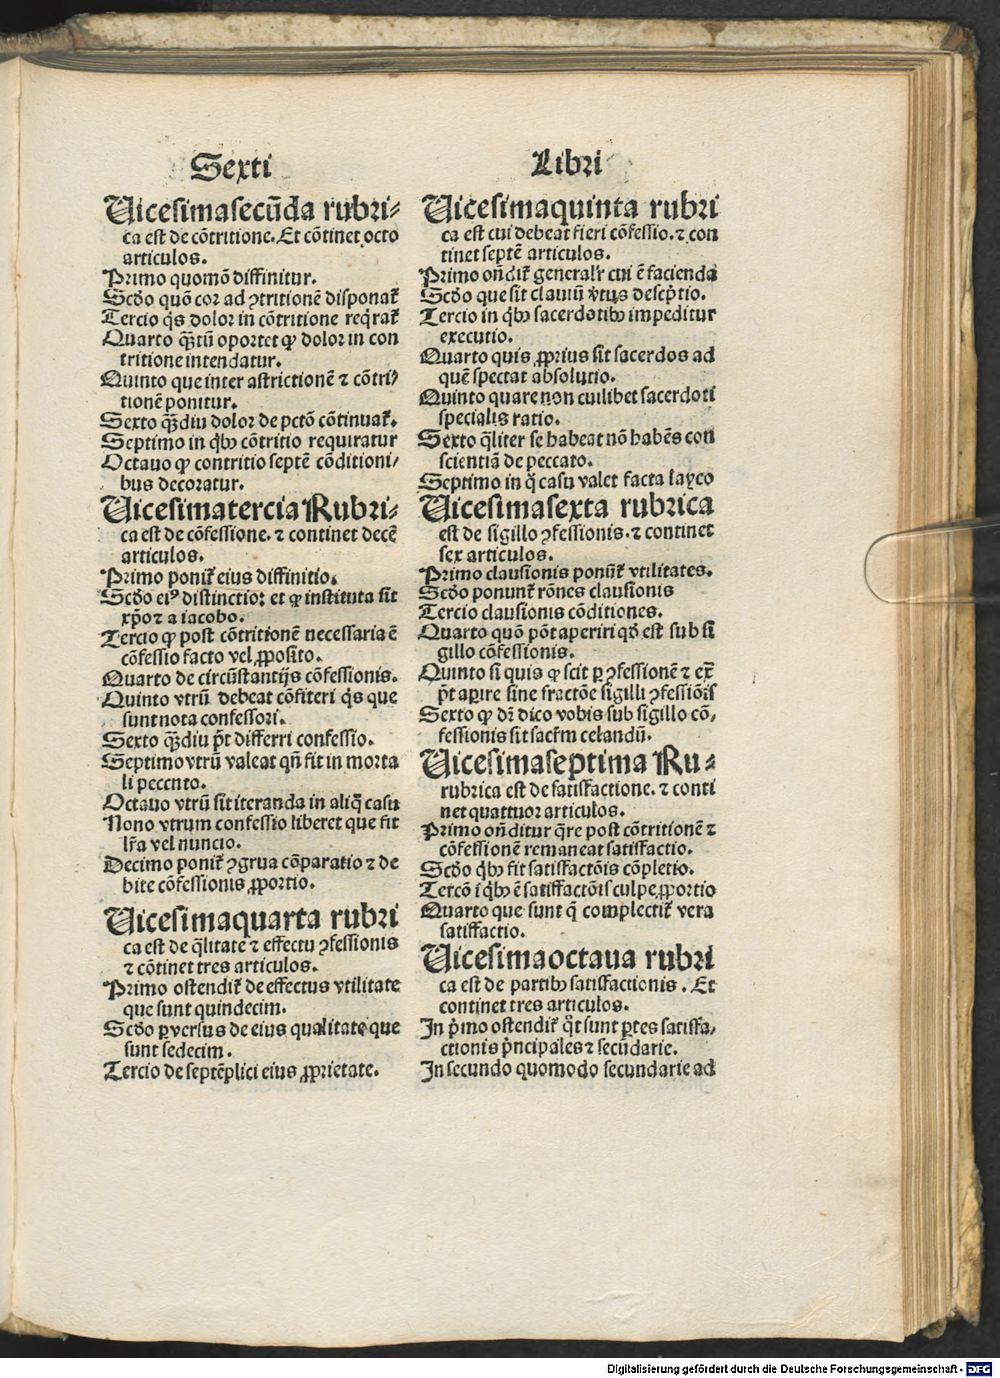 Sexti
Uicesimasecūda rubri⸗
ca est de cōtritione. Et cōtinet octo
articulos.
Primo quomō diffinitur.
Scḋo quō cor ad ꝯtritionē disponat᷑
Tercio q̇s dolor in cōtritione reqrat᷑
Quarto q̄tū oportet ꝙ dolor in con
tritione intendatur.
Quinto que inter astrictionē ⁊ cōtri⸗
tionē ponitur.
Sexto q̄diu dolor de pctō cōtinuat᷑.
Septimo in qͥbꝰ cōtritio requiratur
Octauo ꝙ contritio septē cōditioni⸗
bus decoratur.
Uicesimatercia Rubri⸗
ca est de cōfessione. ⁊ continet decē
articulos.
Primo ponit᷑ eius diffinitio.
Scḋo eiꝰ distinctio: et ꝙ instituta sit
xp̄o ⁊ a iacobo.
Tercio ꝙ post cōtritionē necessaria ē
cōfessio facto vel ꝓposito.
Quarto de circūstantijs cōfessionis.
Quinto vtrū debeat cōfiteri q̇s que
sunt nota confessori.
Sexto q̄diu p̄t differri confessio.
Septimo vtrū valeat qn̄ fit in morta
li peccato.
Octauo vtrū sit iteranda in aliq̄ casu
Nono vtrum confessio liberet que fit
lr̄a vel nuncio.
Decimo ponit᷑ ꝯgrua cōparatio ⁊ de
bite cōfessionis ꝓportio.
Uicesimaquarta rubri
ca est de q̄litate ⁊ effectu ꝯfessionis
⁊ cōtinet tres articulos.
Primo ostendit᷑ de effectus vtilitate
que sunt quindecim.
Scḋo ꝑversus de eius qualitate que
sunt sedecim.
Tercio de septēplici eius ꝓprietate.
Libri
Uicesimaquinta rubri
ca est cui debeat fieri cōfessio. ⁊ con
tinet septē articulos.
Primo on̄dit᷑ generalr̄ cui ē facienda
Scḋo que sit clauiū v̇tus descp̄tio.
Tercio in qͥbꝰ sacerdotibꝰ impeditur
executio.
Quarto quis ꝓprius sit sacerdos ad
quē spectat absolutio.
Quinto quare non cuilibet sacerdoti
specialis ratio.
Sexto q̄liter se habeat nō habēs con
scientiā de peccato.
Septimo in q̄ casu valet facta layco
Uicesimasexta rubrica
est de sigillo ꝯfessionis. ⁊ continet
sex articulos.
Primo clausionis ponūt᷑ vtilitates.
Scḋo ponunt᷑ rōnes clausionis
Tercio clausionis cōditiones.
Quarto quō pōt aperiri qḋ est sub si
gillo cōfessionis.
Quinto si quis ꝙ scit ꝑ ꝯfessionē ⁊ ex̄
p̄t aꝑire sine fractōe sigilli ꝯfessiōis
Sexto ꝙ dr̄ dico vobis sub sigillo cō⸗
fessionis sit sacr̄m celandū.
Uicesimaseptima Ru⸗
rubrica est de satisfactione. ⁊ conti
net quattuor articulos.
Primo on̄ditur q̄re post cōtritionē ⁊
cōfessionē remaneat satisfactio.
Scḋo qͥbꝰ fit satisfactōis cōpletio.
Tercō ī qͥbꝰ ē satisfactōis culpe ꝓportio
Quarto que sunt q̄ complectit᷑ vera
satisfactio.
Uicesimaoctaua rubri
ca est de partibꝰ satisfactionis. Et
continet tres articulos.
In pͥmo ostendit᷑ q̄t sunt ꝑtes satisfa⸗
ctionis pͥncipales ⁊ secūdarie.
In secundo quomodo secundarie ad
Digitalisierung gefördert durch die Deutsche Forschungsgemeinschaft - DFG